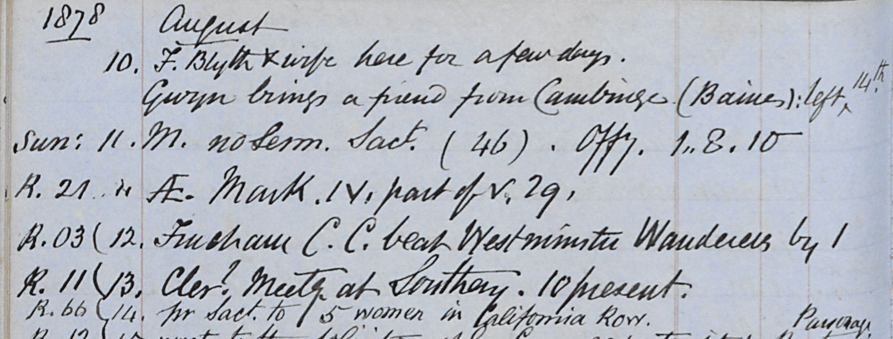 1878 August
10. F. Blyth & wife here for a few days.
Gwyn brings a friend from Cambridge (Baines): left, 14.th
Sun: 11. M. no Serm. Sact. (46). Offy. 1..8.10
R. 21 .. Æ. Mark. IV, part of v. 29,
R. 03 (12. Fincham C. C. beat Westminster Wanderers by 1
R. 11 (13. Cler? Meetg at Southery. 10 present.
R. 66 (14. pr Sact. to 5 women in California Row. Parsonage